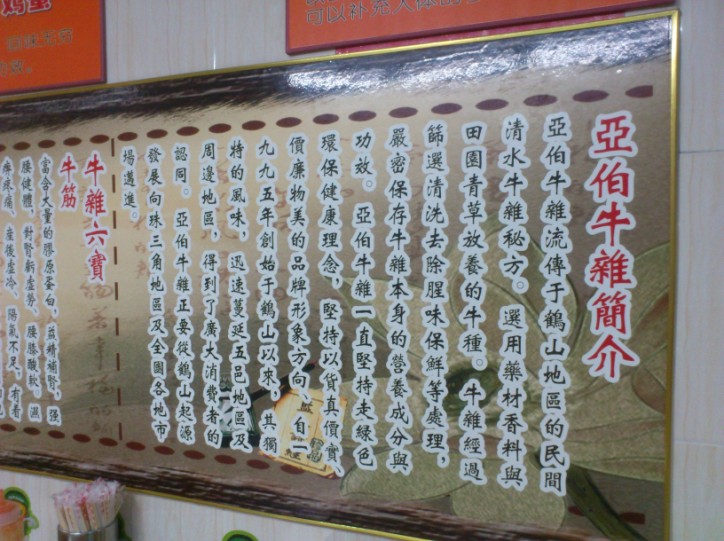 亞伯牛雜簡介
亞伯牛雜流傳于鶴山地區的民間
清水牛雜秘方。選用藥材香料與
田園青草放養的牛種。牛雜經過
篩選清洗去除腥味保鮮等處理，
嚴密保存牛雜本身的營養成分與
功效。亞伯牛雜一直堅持走綠色
環保健康理念，堅持以貨真價實、
價廉物美的品牌形象方向，自一
九九五年創始于鶴山以來，其獨
特的風味，迅速蔓延五邑地區及
周邊地區，得到了廣大消費者的
認同。亞伯牛雜正要從鶴山起源
發展向珠三角地區及全國各地市
場邁進。
牛雜六寶
牛筋
富含大量的膠原蛋白，益精補腎，强
腰健體，對腎虧虚勞、腰膝酸軟、濕
痹疼痛、産後虚冷、陽氣不足，有着
可以补充人体